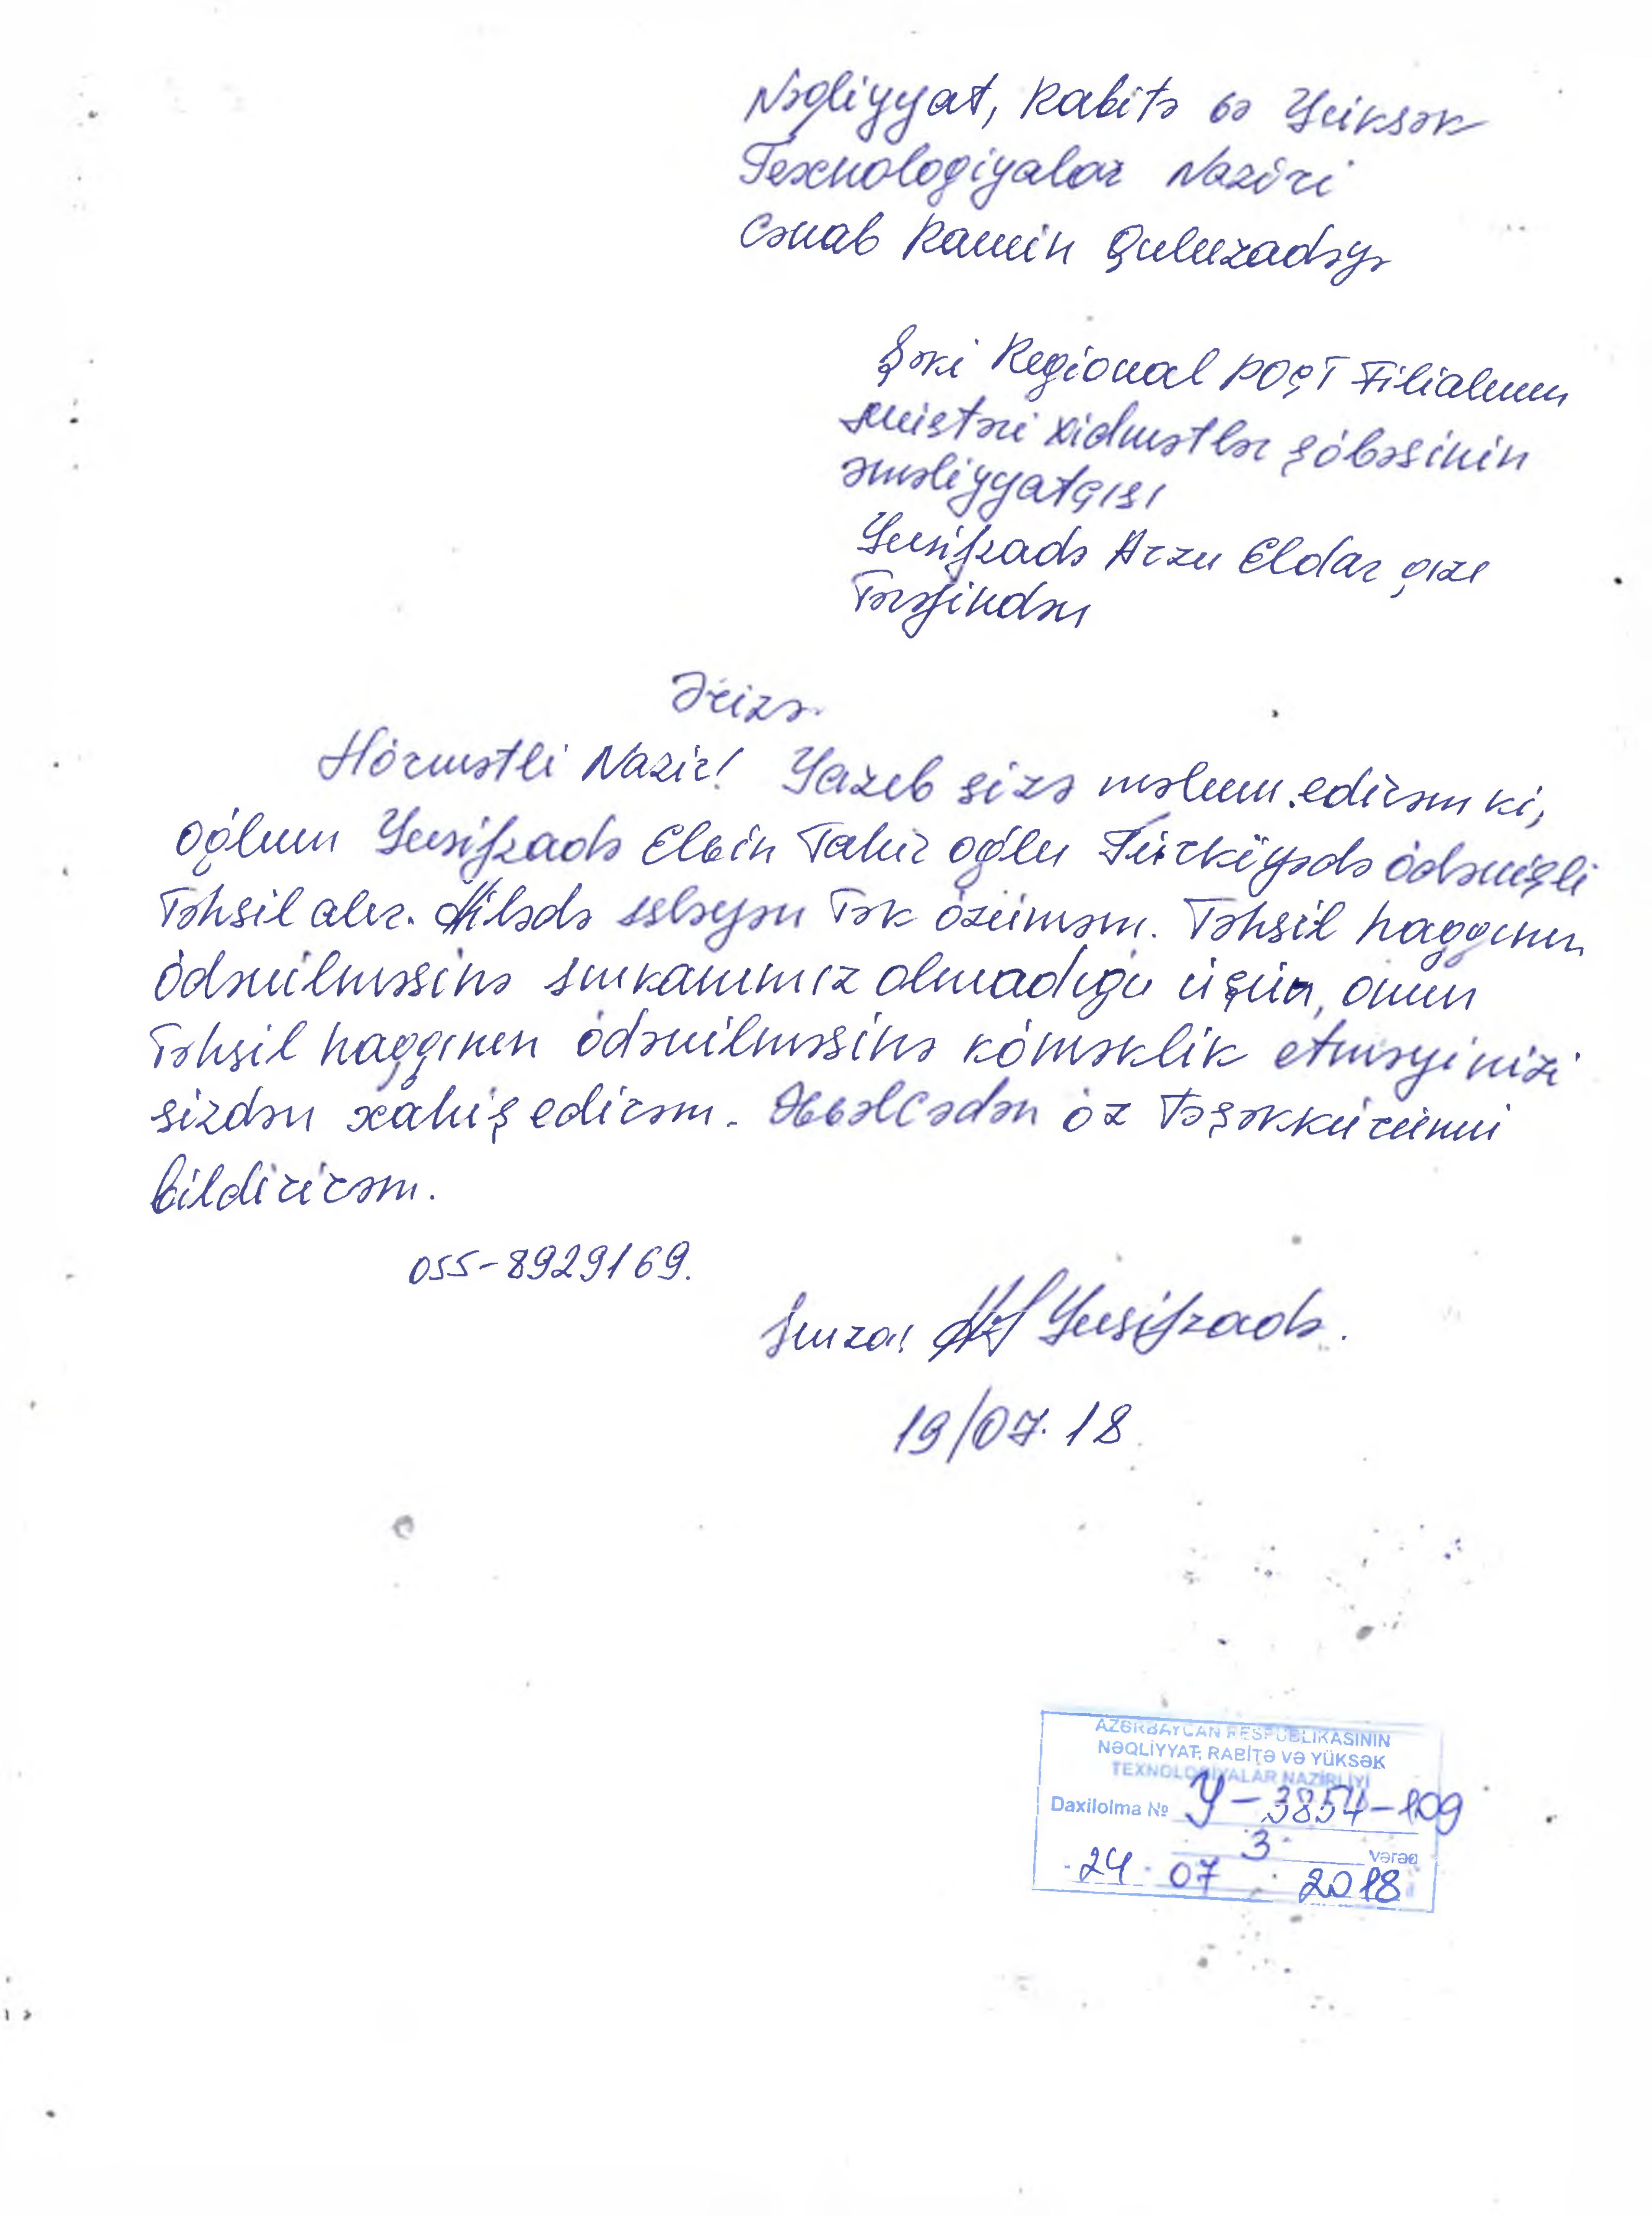 Nəqliyyat, Rabitə və Yüksək
Texnologiyalar Naziri
Cənab Ramin Quluzadəyə
Şəki Regional POÇT Filialının
müştəri xidmətlər şöbəsinin
əməliyyatçısı
Yusifzadə Arzu Eldar qızı
Tərəfindən
Ərizə
Hörmətli Nazir! Yazıb sizə məlum edirəm ki,
oğlum Yusifzadə Elvin Tahir oğlu Türkiyədə ödənişli
Təhsil alır. Ailədə işləyən Tək özüməm. Təhsil haqqının
ödənilməsinə imkanımız olmadığı üçün, onun
Təhsil haqqının ödənilməsinə köməklik etməyinizi
sizdən xahiş edirəm. Əvvəlcədən öz Təşəkkürümü
bildirirəm.
055-8929169.
İmza: Yusifzadə.
19/07.18
AZƏRBAYCAN RESPUBLİKASININ
NƏQLİYYAT, RABİTƏ VƏ YÜKSƏK
TEXNOLOGİYALAR NAZİRLİYİ
Daxilolma № Y-3854-109
3 vərəq
24 07 2018